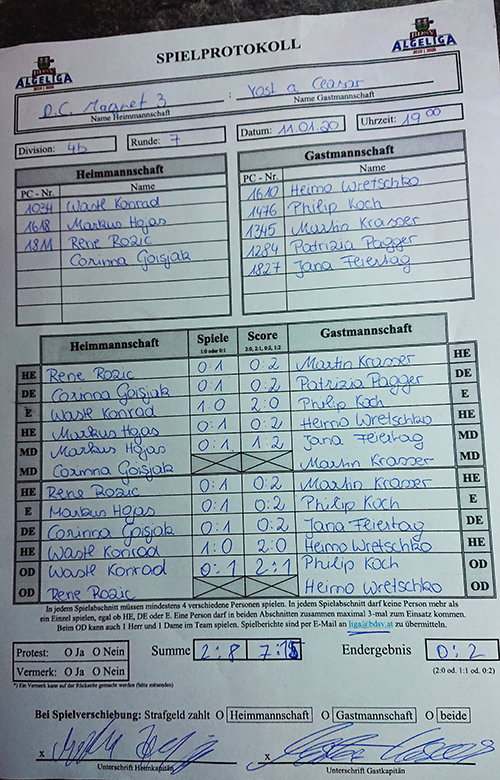 BDSV
ALGELIGA
SPIELPROTOKOLL
BDSV
ALGELIGA
D.C. Magnet 3 : Vost a Ceasar
Name Heimmannschaft Name Gastmannschaft
Division: 4b Runde: 7 Datum: 11.01.20 Uhrzeit: 19 00
Heimmannschaft
PC - Nr. Name
1034 Wastl Konrad
1618 Markus Hojas
1811 Rene Rozic
Corinna Goisjak
Gastmannschaft
PC - Nr. Name
1610 Heimo Wretschko
1476 Philip Koch
1345 Martin Krasser
1284 Patrizia Pagger
1827 Jana Feiertag
Heimmannschaft Spiele Score Gastmannschaft
1:0 oder 0:1 2:0, 2:1, 0:2, 1:2
HE Rene Rozic 0:1 0:2 Martin Krasser HE
DE Corinna Goisjak 0:1 0:2 Patrizia Pagger DE
E Wastl Konrad 1 0 2:0 Philip Koch E
HE Markus Hojas 0:1 0:2 Heimo Wretschko HE
MD Markus Hojas 0:1 1:2 Jana Feiertag MD
MD Corinna Goisjak Martin Krasser MD
HE Rene Rozic 0:1 0:2 Martin Krasser HE
E Markus Hojas 0:1 0:2 Philip Koch E
DE Corinna Goisjak 0:1 0:2 Jana Feiertag DE
HE Wastl Konrad 1:0 2:0 Heimo Wretschko HE
OD Wastl Konrad 0:1 2:1 Philip Koch OD
OD Rene Rozic Heimo Wretschko OD
In jedem Spielabschnitt müssen mindestens 4 verschiedene Personen spielen. In jedem Spielabschnitt darf keine Person mehr als
ein Einzel spielen, egal ob HE, DE oder E. Eine Person darf in beiden Abschnitten zusammen maximal 3-mal zum Einsatz kommen.
Beim OD kann auch 1 Herr und 1 Dame im Team spielen. Spielberichte sind per E-Mail an liga@bdsv.at zu übermitteln.
Protest: O Ja O Nein Summe 2:8 7:15 Endergebnis 0:2
Vermerk: O Ja O Nein (2:0 od. 1:1 od. 0:2)
*) Ein Vermerk kann auf der Rückseite gemacht werden (bitte ankreuzen)
Bei Spielverschiebung: Strafgeld zahlt O Heimmannschaft O Gastmannschaft O beide
x x
Unterschrift Heimkapitän Unterschrift Gastkapitän